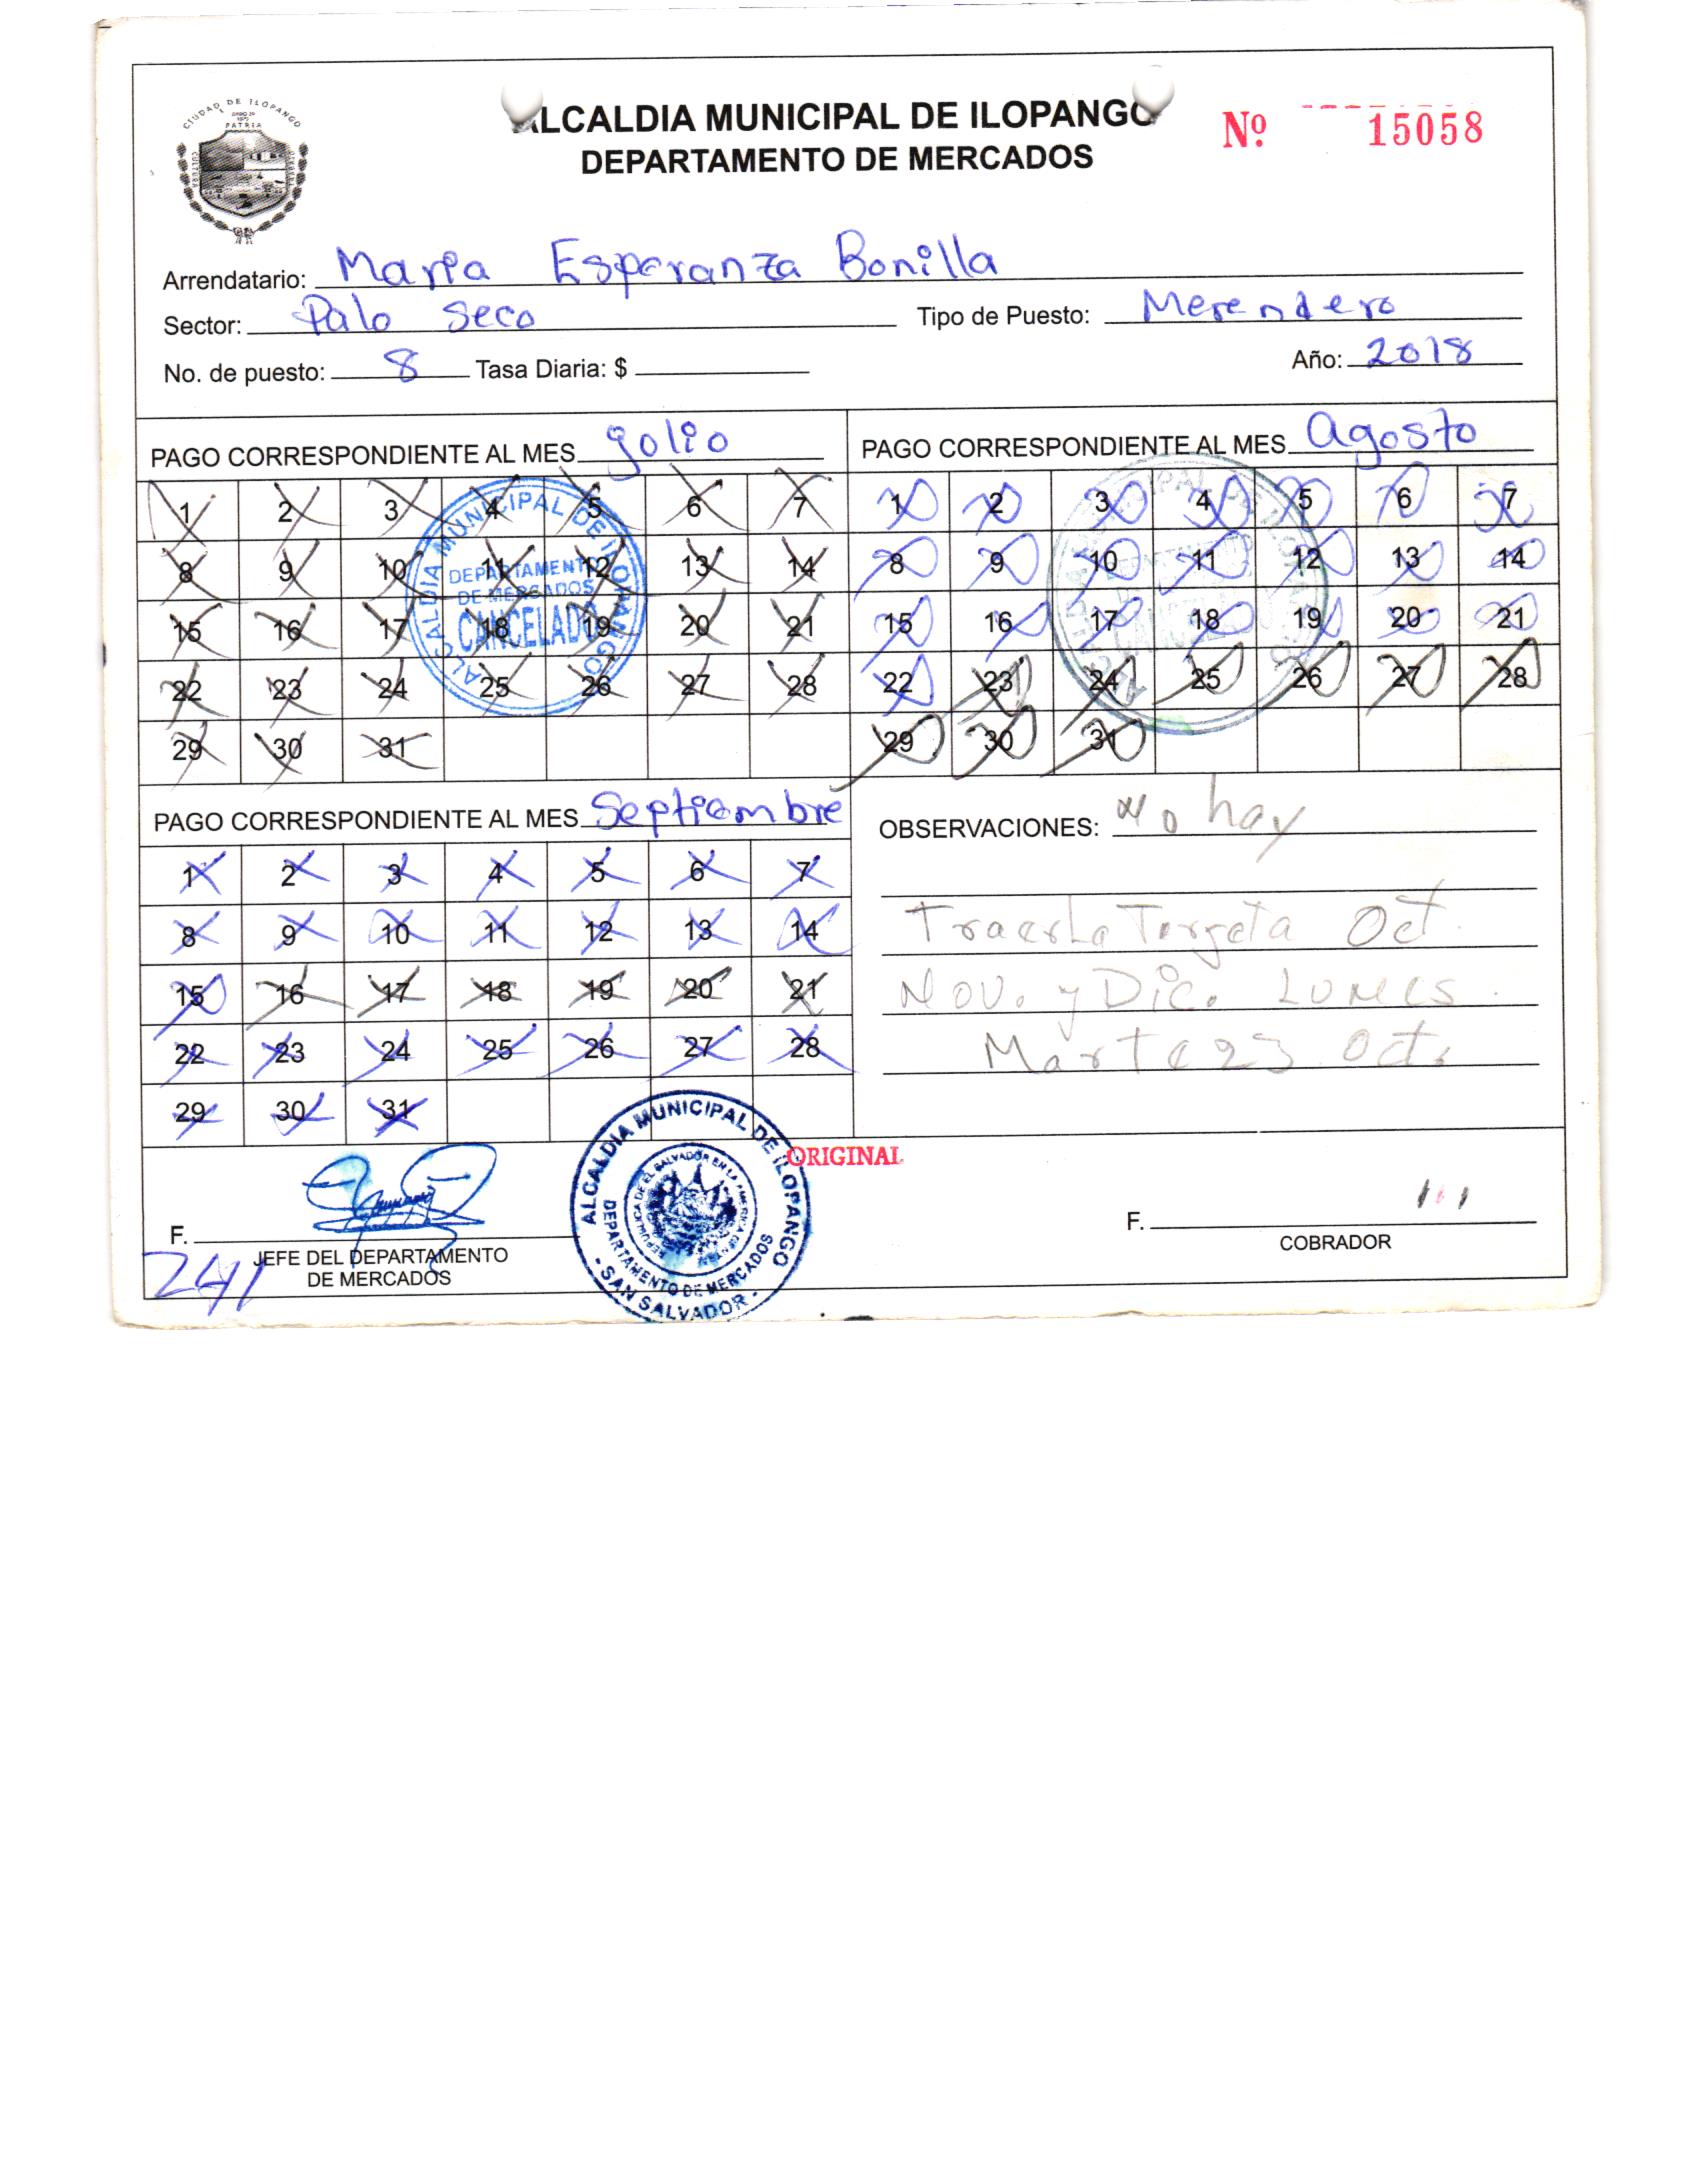 CIUDAD DE ILOPANGO
PATRIA
CULTURA
ALCALDIA MUNICIPAL DE ILOPANGO
DEPARTAMENTO DE MERCADOS
Nº 15058
Arrendatario: Maria Esperanza Bonilla
Sector: Palo Seco Tipo de Puesto: Merendero
No. de puesto: 8 Tasa Diaria: $ Año: 2018
PAGO CORRESPONDIENTE AL MES golio
1 2 3 4 5 6 7
8 9 10 11 12 13 14
15 16 17 18 19 20 21
22 23 24 25 26 27 28
29 30 31
ALCALDIA MUNICIPAL DE ILOPANGO
DEPARTAMENTO
DE MERCADOS
CANCELADO
PAGO CORRESPONDIENTE AL MES Agosto
1 2 3 4 5 6 7
8 9 10 11 12 13 14
15 16 17 18 19 20 21
22 23 24 25 26 27 28
29 30 31
PAGO CORRESPONDIENTE AL MES Septiembre
1 2 3 4 5 6 7
8 9 10 11 12 13 14
15 16 17 18 19 20 21
22 23 24 25 26 27 28
29 30 31
OBSERVACIONES: No hay
Traer La Targeta Oct.
Nov. y Dic. Lunes.
Marte 23 Oct.
ORIGINAL
F.
JEFE DEL DEPARTAMENTO
DE MERCADOS
241
ALCALDIA MUNICIPAL DE ILOPANGO
DEPARTAMENTO DE MERCADOS
- SAN SALVADOR -
F.
COBRADOR